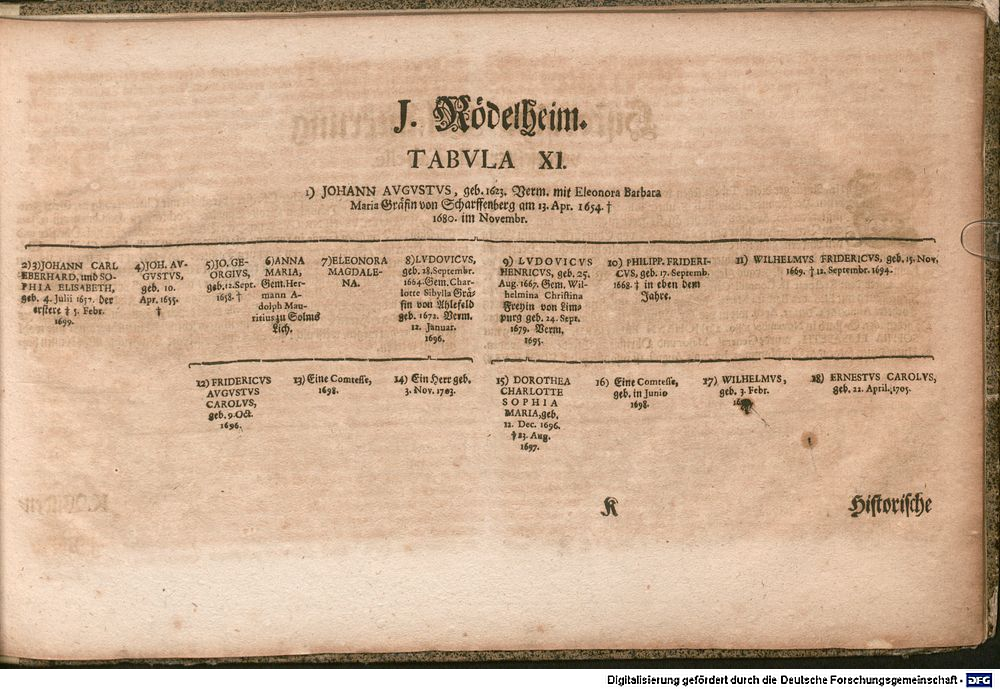 J. Rödelheim.
TABVLA XI.
1) JOHANN AVGVSTVS, geb. 1623. Verm. mit Eleonora Barbara
Maria Gräfin von Scharffenberg am 13. Apr. 1654. †
1680. im Novembr.
2)3)JOHANN CARL
EBERHARD, und SO-
PHIA ELISABETH,
geb. 4. Julii 1657. Der
erstere † 5. Febr.
1699.
4)JOH. AV-
GVSTVS,
geb. 10.
Apr. 1655.
†
5)JO. GE-
ORGIVS,
geb.12.Sept.
1658. †
6)ANNA
MARIA,
Gem.Her-
mann A-
dolph Mau-
ritius zu Solms
Lich.
7)ELEONORA
MAGDALE-
NA.
8)LVDOVICVS,
geb. 28.Septembr.
1664. Gem. Char-
lotte Sibylla Grä-
fin von Ahlefeld
geb. 1672. Verm.
12. Januar.
1696.
9) LVDOVICVS
HENRICVS, geb. 25.
Aug. 1667. Gem. Wil-
helmina Christina
Freyin von Lim-
purg geb. 24. Sept.
1679. Verm.
1695.
10) PHILIPP. FRIDERI-
CVS, geb. 17. Septemb.
1668. † in eben dem
Jahre.
11) WILHELMVS FRIDERICVS, geb. 15. Nov.
1669. † 12. Septembr. 1694.
12) FRIDERICVS
AVGVSTVS
CAROLVS,
geb. 9. Oct.
1696.
13) Eine Comtesse,
1698.
14) Ein Herr geb.
3. Nov. 1703.
15) DOROTHEA
CHARLOTTE
SOPHIA
MARIA, geb.
12. Dec. 1696.
† 23. Aug.
1697.
16) Eine Comtesse,
geb. in Junio
1698.
17) WILHELMVS,
geb. 3. Febr.
18) ERNESTVS CAROLVS,
geb. 22. April, 1705.
K
Historische
Digitalisierung gefördert durch die Deutsche Forschungsgemeinschaft - DFG